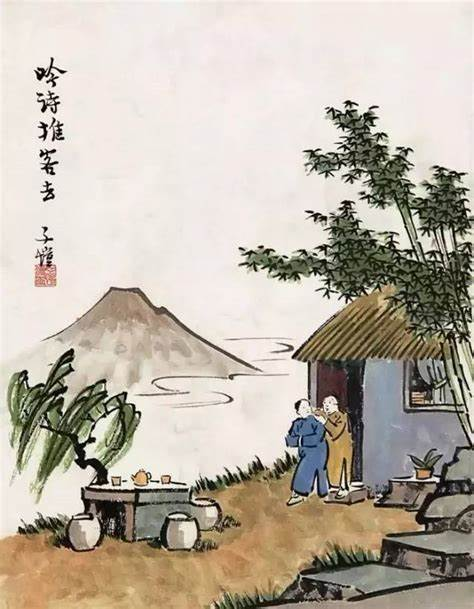 吟诗推客去
子愷